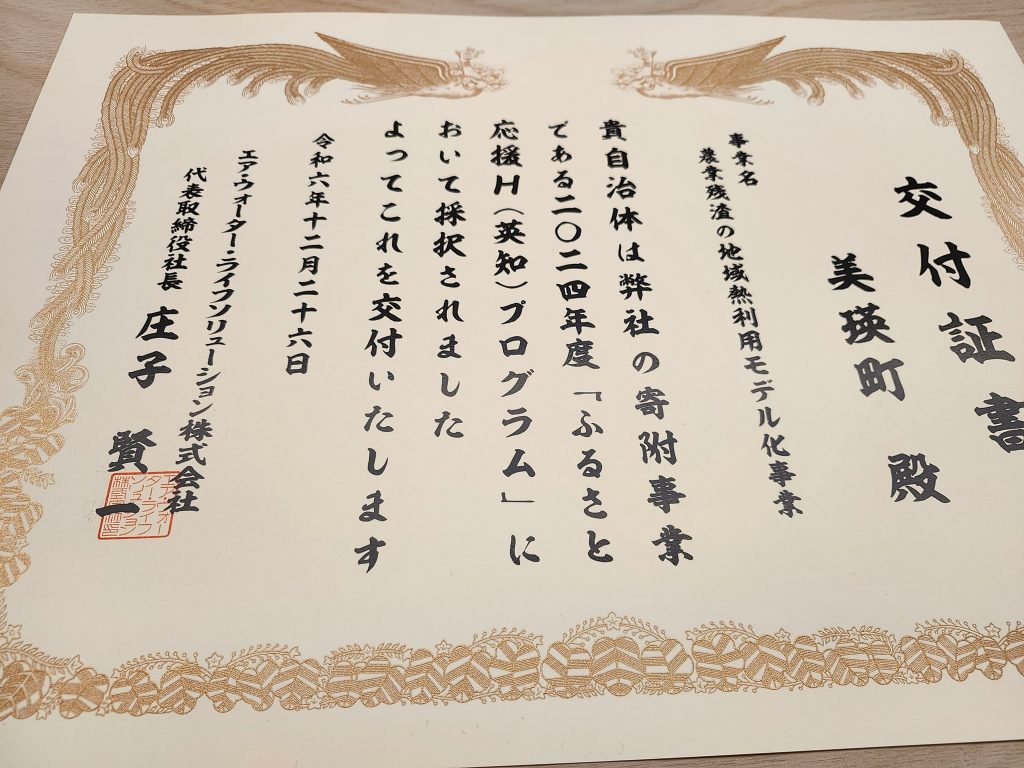 交付証書
美瑛町 殿
事業名
農業残渣の地域熱利用モデル化事業
貴自治体は弊社の寄附事業
である二〇二四年度「ふるさと
応援H(英知)プログラム」に
おいて採択されました
よってこれを交付いたします
令和六年十二月二十六日
エア・ウォーター・ライフソリューション株式会社
代表取締役社長 庄子 賢一